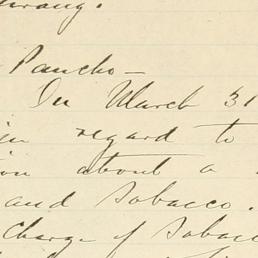 Pancho—
In March 31
regard to
ion about a
and Tobacco.
Charge of Tobacc